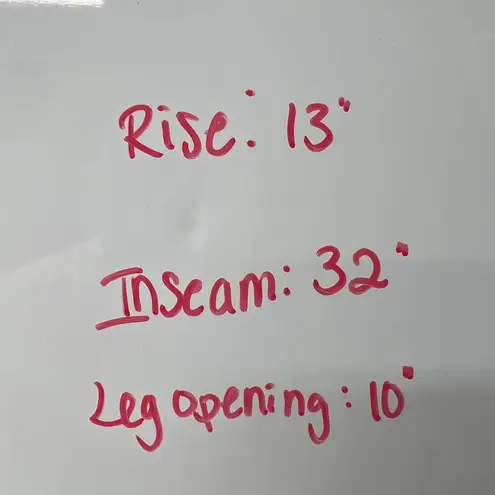 Rise: 13"
Inseam: 32"
Leg opening: 10"